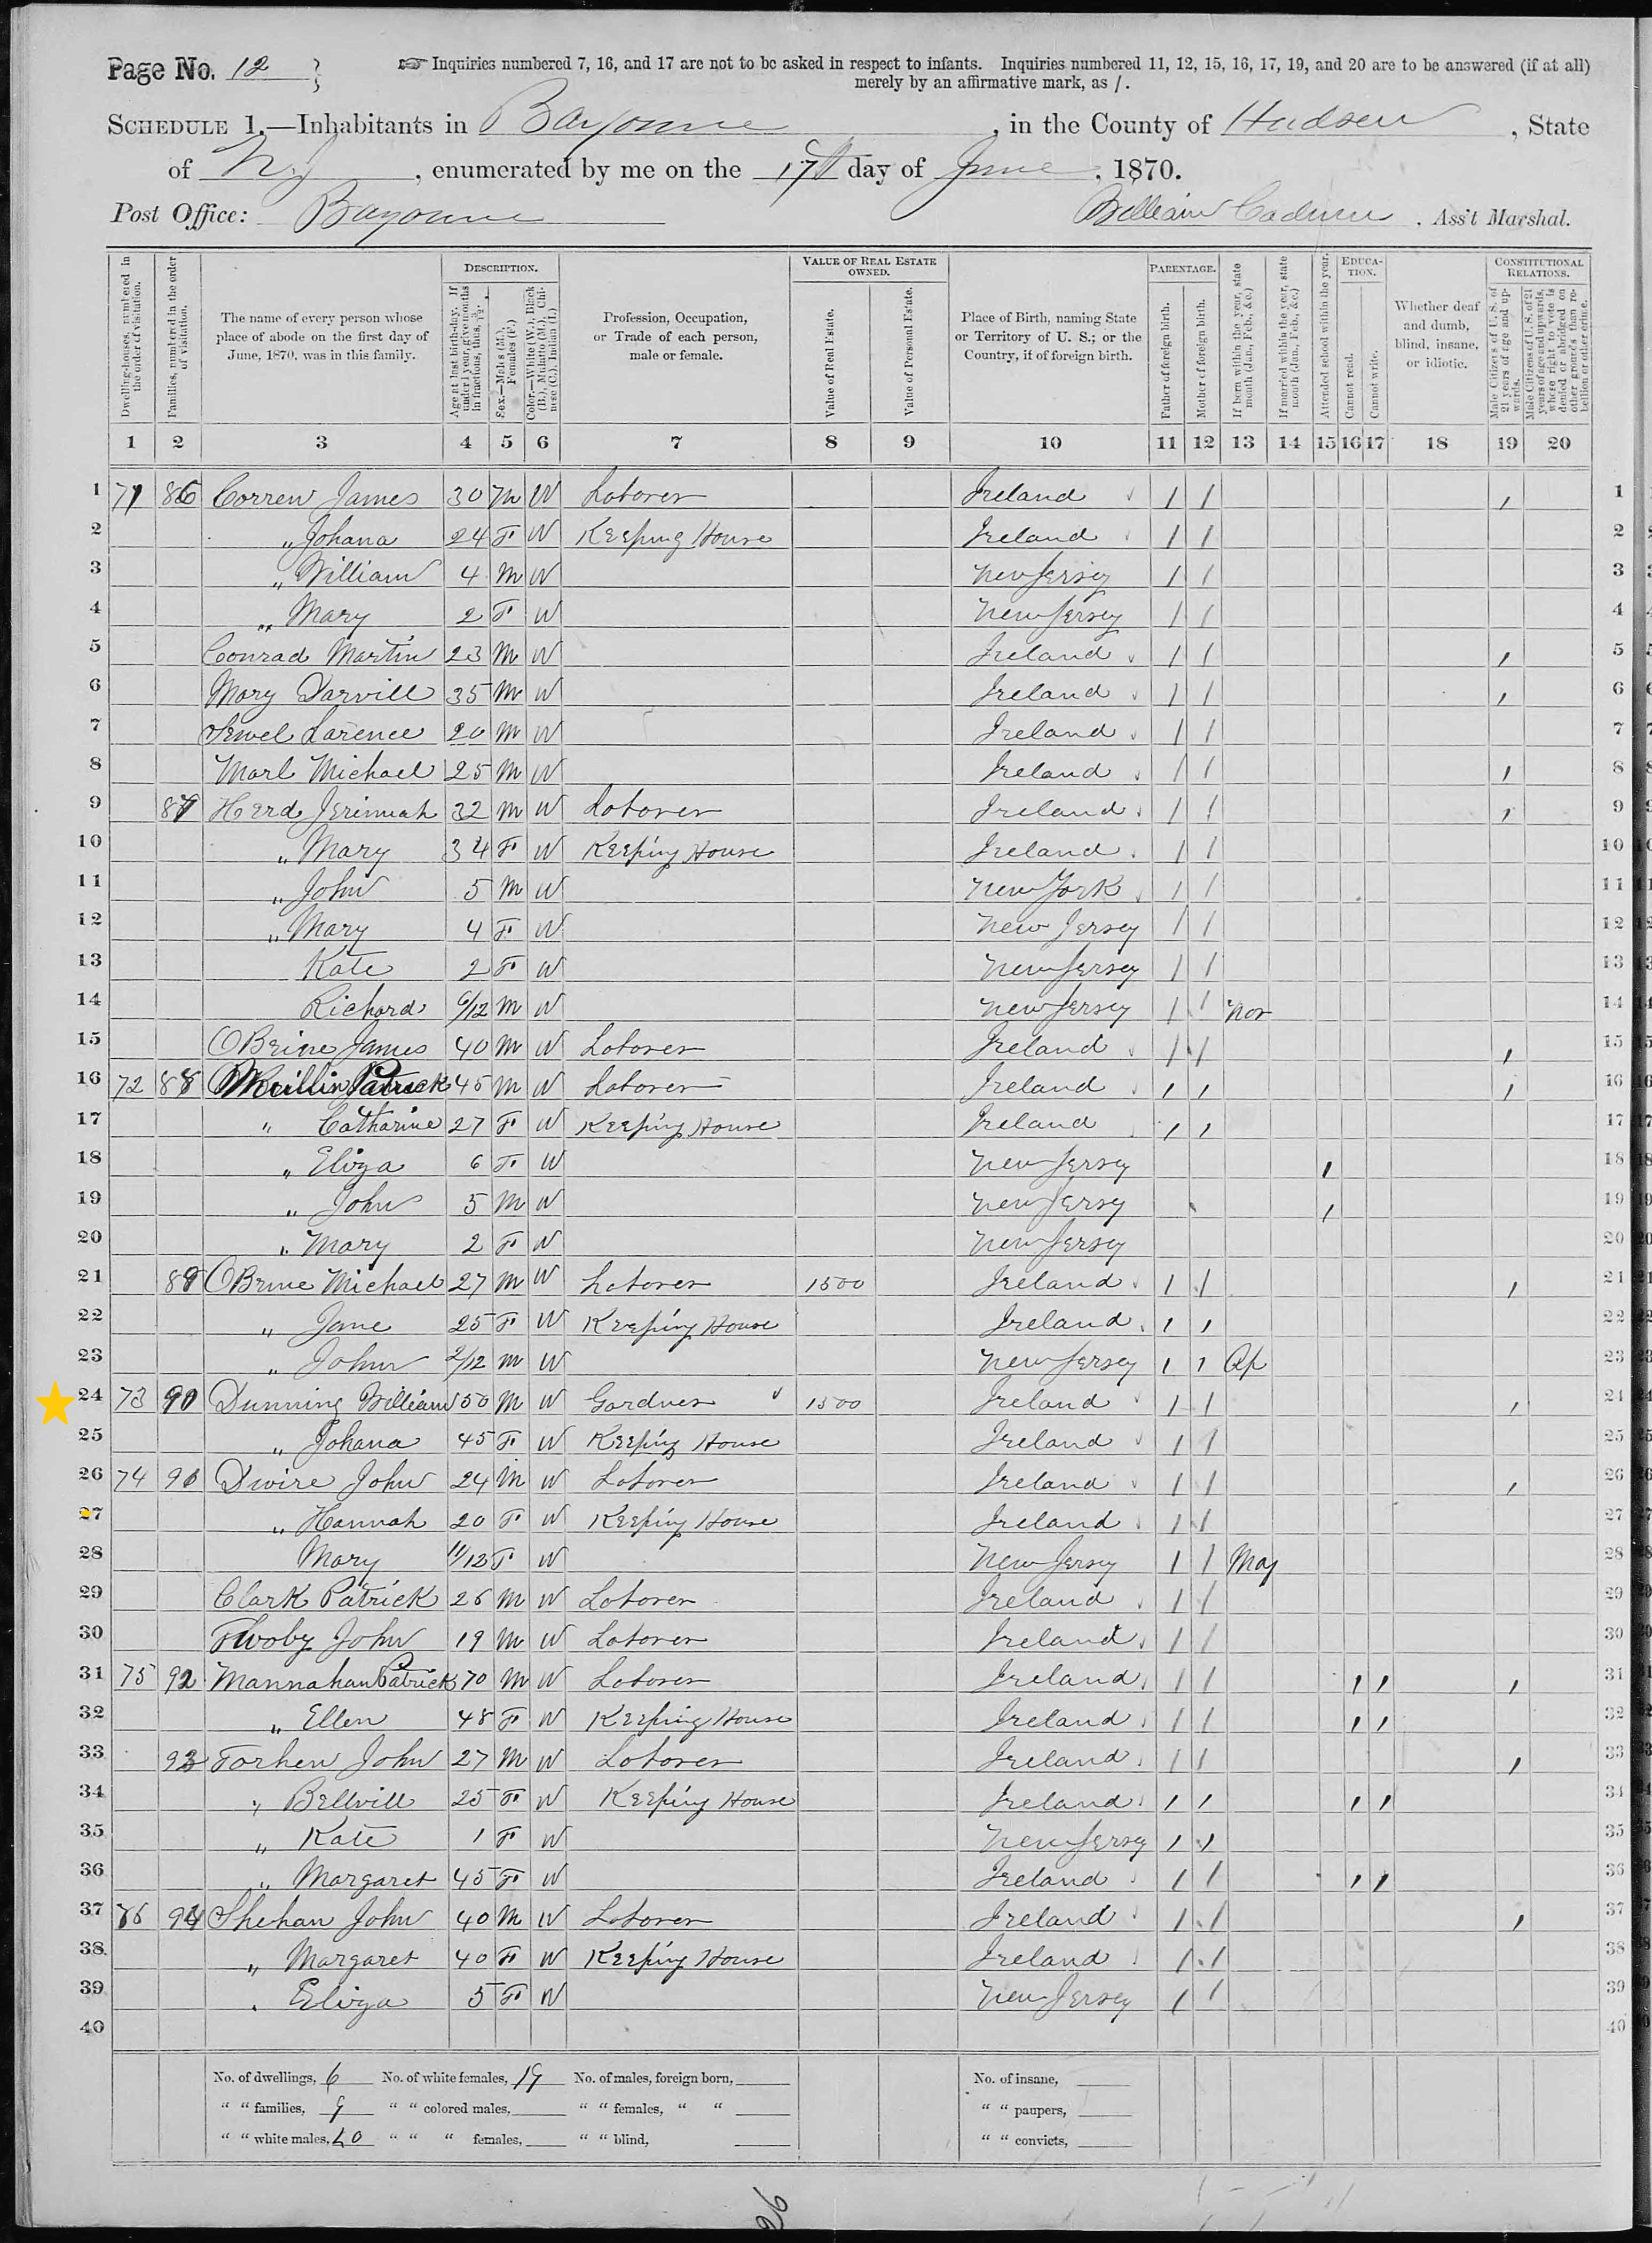 Page No. 12
☞ Inquiries numbered 7, 16, and 17 are not to be asked in respect to infants. Inquiries numbered 11, 12, 15, 16, 17, 19, and 20 are to be answered (if at all)
merely by an affirmative mark, as /.
SCHEDULE 1.—Inhabitants in Bayonne, in the County of Hudson, State
of N.J, enumerated by me on the 17th day of June, 1870.
Post Office: Bayonne William Cadmus, Ass't Marshal.
DESCRIPTION. VALUE OF REAL ESTATE OWNED. PARENTAGE. EDUCATION. CONSTITUTIONAL RELATIONS.
Dwelling-houses, numbered in the order of visitation.
Families, numbered in the order of visitation.
The name of every person whose place of abode on the first day of June, 1870, was in this family.
Age at last birth-day. If under 1 year, give months in fractions, thus, 3/12.
Sex.—Males (M.), Females (F.)
Color.—White (W.), Black (B.), Mulatto (M.), Chinese (C.), Indian (I.)
Profession, Occupation, or Trade of each person, male or female.
Value of Real Estate.
Value of Personal Estate.
Place of Birth, naming State or Territory of U. S.; or the Country, if of foreign birth.
Father of foreign birth.
Mother of foreign birth.
If born within the year, state month (Jan., Feb., &c.)
If married within the year, state month (Jan., Feb., &c.)
Attended school within the year.
Cannot read.
Cannot write.
Whether deaf and dumb, blind, insane, or idiotic.
Male Citizens of U. S. of 21 years of age and upwards.
Male Citizens of U. S. of 21 years of age and upwards, whose right to vote is denied or abridged on other grounds than rebellion or other crime.
1 2 3 4 5 6 7 8 9 10 11 12 13 14 15 16 17 18 19 20
1 71 86 Corren James 30 M W Laborer Ireland / / / 1
2 " Johana 24 F W Keeping House Ireland / / 2
3 " William 4 M W New Jersey / / 3
4 " Mary 2 F W New Jersey / / 4
5 Conrad Martin 23 M W Ireland / / / 5
6 Mory Darvill 35 M W Ireland / / / 6
7 Larence 20 M W Ireland / / 7
8 Marl Michael 25 M W Ireland / / / 8
9 87 Herd Jerimiah 32 M W Laborer Ireland / / / 9
10 " Mary 34 F W Keeping House Ireland / / 10
11 " John 5 M W New York / / 11
12 " Mary 4 F W New Jersey / / 12
13 Kate 2 F W New Jersey / / 13
14 Richard 6/12 M W New Jersey / / Nov 14
15 OBrine James 40 M W Laborer Ireland / / / 15
16 72 88 Patrick 45 M W Laborer Ireland / / / 16
17 " Catharine 27 F W Keeping House Ireland / / 17
18 " Eliza 6 F W New Jersey / 18
19 " John 5 M W New Jersey / 19
20 " Mary 2 F W New Jersey 20
21 89 OBrine Michael 27 M W Laborer 1500 Ireland / / / 21
22 " Jane 25 F W Keeping House Ireland / / 22
23 " John 2/12 M W New Jersey / / Ap 23
24 73 90 Dunning William 50 M W Gardner 1500 Ireland / / / 24
25 " Johana 45 F W Keeping House Ireland / / 25
26 74 91 Dwire John 24 M W Laborer Ireland / / / 26
27 " Hannah 20 F W Keeping House Ireland / / 27
28 Mary 11/12 F W New Jersey / / May 28
29 Clark Patrick 26 M W Laborer Ireland / / 29
30 Twoby John 19 M W Laborer Ireland / / 30
31 75 92 Mannahan Patrick 70 M W Laborer Ireland / / / / / 31
32 " Ellen 48 F W Keeping House Ireland / / / / 32
33 93 Forhen John 27 M W Laborer Ireland / / / 33
34 " Bellvill 25 F W Keeping House Ireland / / / / 34
35 " Kate 1 F W New Jersey / / 35
36 " Margaret 45 F W Ireland / / / / 36
37 76 94 Shehan John 40 M W Laborer Ireland / / / 37
38 " Margaret 40 F W Keeping House Ireland / / 38
39 " Eliza 5 F W New Jersey / / 39
40 40
No. of dwellings, 6 No. of white females, 19 No. of males, foreign born, No. of insane,
" " families, 9 " " colored males, " " females, " " " " paupers,
" " white males, 20 " " " females, " " blind, " " convicts,